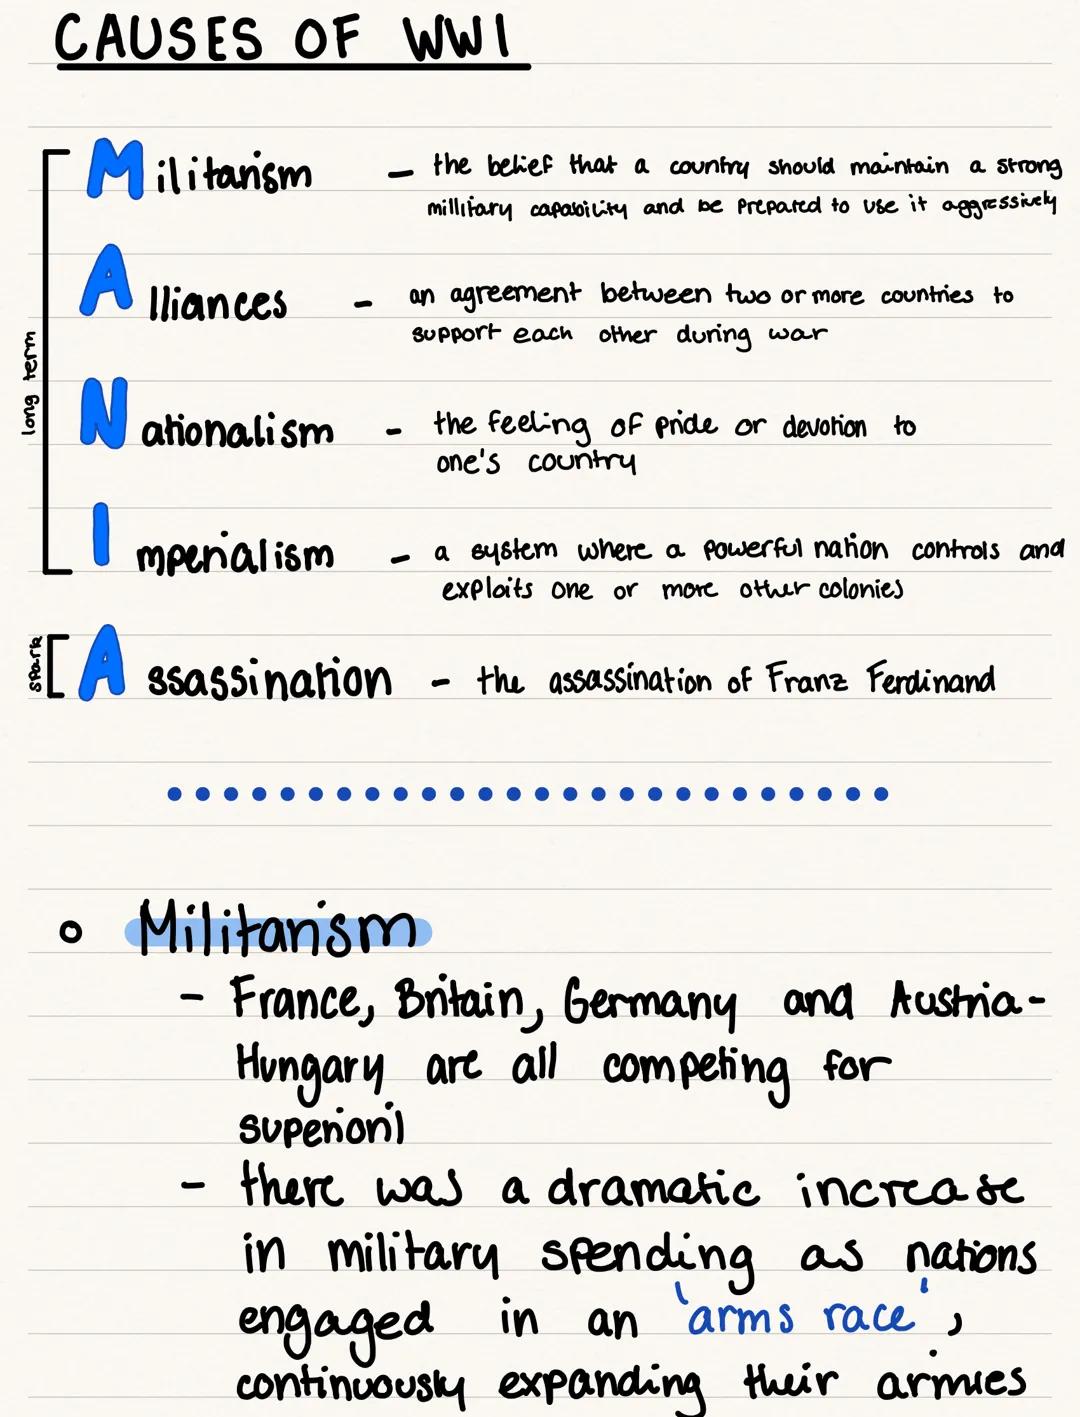 CAUSES OF WW1
Militarism - the belief that a country should maintain a strong
millitary capability and be prepared to use it aggressively
Alliances - an agreement between two or more countries to
support each other during war
long term
Nationalism - the feeling of pride or devotion to
one's country
Imperialism - a system where a powerful nation controls and
exploits one or more other colonies
spark
Assassination - the assassination of Franz Ferdinand
Militarism
- France, Britain, Germany and Austria-
Hungary are all competing for
superiori
- there was a dramatic increase
in military spending as nations
engaged in an 'arms race',
continuously expanding their armies